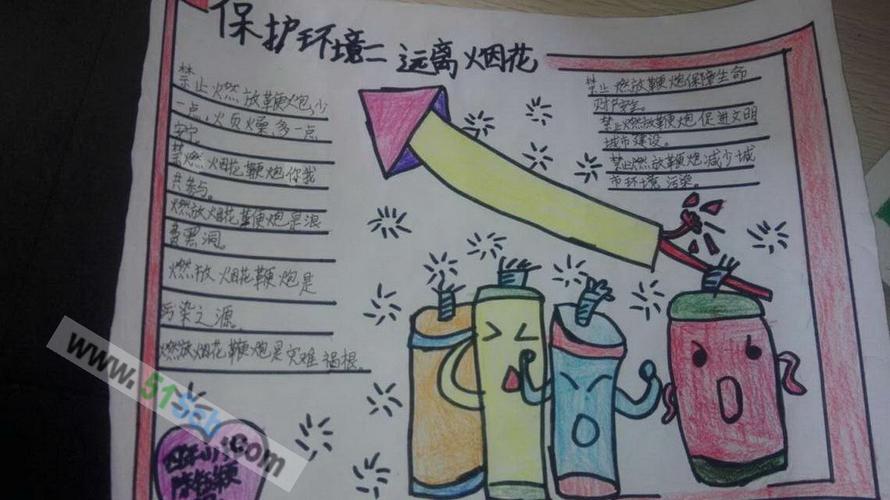 保护环境 远离烟花
禁止燃放鞭炮,少
一点,火员燥,多一点
安宁。
禁燃烟花鞭炮你我
共参与。
燃放烟花鞭炮是浪
费黑洞。
燃放烟花鞭炮是
污染之源。
燃放烟花鞭炮是灾难祸根。
禁止燃放鞭炮保障生命
财产安全。
禁止燃放鞭炮促进文明
城市建设。
禁止燃放鞭炮减少城
市环境污染。
www.51Sxb.com